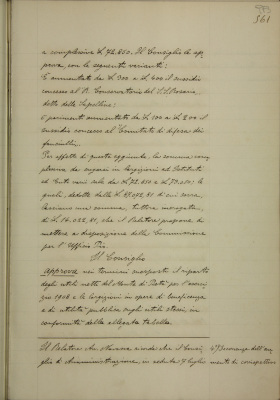 561
a complessive L. 72.850. Il Consiglio le ap
prova, con le seguenti varianti:
È aumentato da L. 300 a L. 400 il sussidio
concesso al R. Conservatorio del SS. Rosario,
detto delle
È parimenti aumentato da L. 100 a L. 200 il
sussidio concesso al Comitato di difesa dei
fanciulli.
Per effetto di queste aggiunte, la somma com
plessiva da erogarsi in largizioni ad Istituti
ed Enti varii sale da L. 72.850 a L. 73.050; la
quale, dedotta dalle L. di cui sopra,
lasciano una rimanenza, tuttora, inerogata,
di L. che il Relatore propone di
mettere a disposizione della Commissione
per l'Ufficio Pio.
Il Consiglio
approva nei termini suesposti il riparto
degli utili netti del Monte di Pietà per l'eserci
zio 1908 e le largizioni in opere di beneficenza
e di utilità pubblica sugli utili stessi, in
conformità della allegata tabella.
Il Relatore ricorda che il Consi
glio di Amministrazione, in seduta 7 luglio